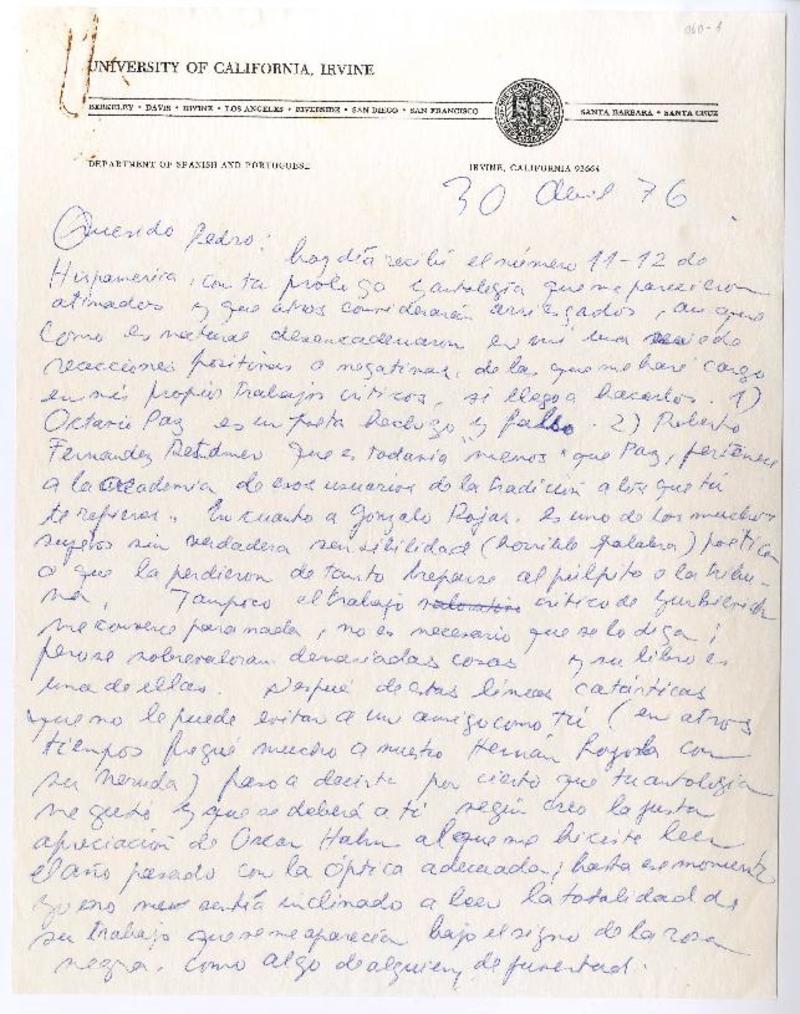 060-1
UNIVERSITY OF CALIFORNIA, IRVINE
BERKELEY • DAVIS • IRVINE • LOS ANGELES • RIVERSIDE • SAN DIEGO • SAN FRANCISCO
SANTA BARBARA • SANTA CRUZ
DEPARTMENT OF SPANISH AND PORTUGUESE
IRVINE, CALIFORNIA 92664
30 Abril 76
Querido Pedro: hoy día recibí el número 11-12 de
Hispamerica, con tu prólogo y antología que me parecieron
atinados y que otros considerarán arriesgados, aunque
como es natural desencadenaron en mí una
reacciones positivas o negativas, de las que me haré cargo
en mis propios trabajos críticos, si llego a hacerlos. 1)
Octavio Paz es un poeta hechizo y falso. 2) Roberto
Fernandez Retamar que es todavía "menos" que Paz, pertenece
a la academia de esos usuarios de la tradición a los que tú
te refieres. En cuanto a Gonzalo Rojas. es uno de los muchos
sujetos sin verdadera sensibilidad (horrible palabra) poética
o que la perdieron de tanto treparse al púlpito o la tribu-
na. Tampoco el trabajo crítico de Yurkievich
me convence para nada, no es necesario que se lo diga;
pero se sobrevaloran demasiadas cosas y su libro es
una de ellas. Después de estas líneas catárticas
que no le puede evitar a un amigo como tú (en otros
tiempos jregué mucho a nuestro Hernán Loyola con
su Neruda) paso a decirte por cierto que tu antología
me gustó y que se deberá a ti según creo la justa
apreciación de Oscar Hahn al que me hiciste leer
el año pasado con la óptica adecuada; hasta ese momento
yo no me sentía inclinado a leer la totalidad de
su trabajo que se me aparecía bajo el signo de la rosa
negra. como algo de alguien de juventud.